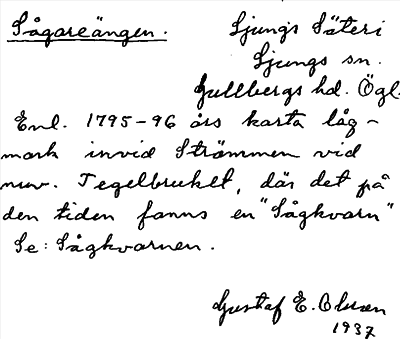 Sågareängen. Ljungs Säteri
Ljungs sn.
Gullbergs hd. Ögl.
Enl. 1795-96 års karta låg-
mark invid Strömmen vid
nuv. Tegelbruket, där det på
den tiden fanns en "Sågkvarn"
Se: Sågkvarnen.
Gustaf E. Olsson
1937